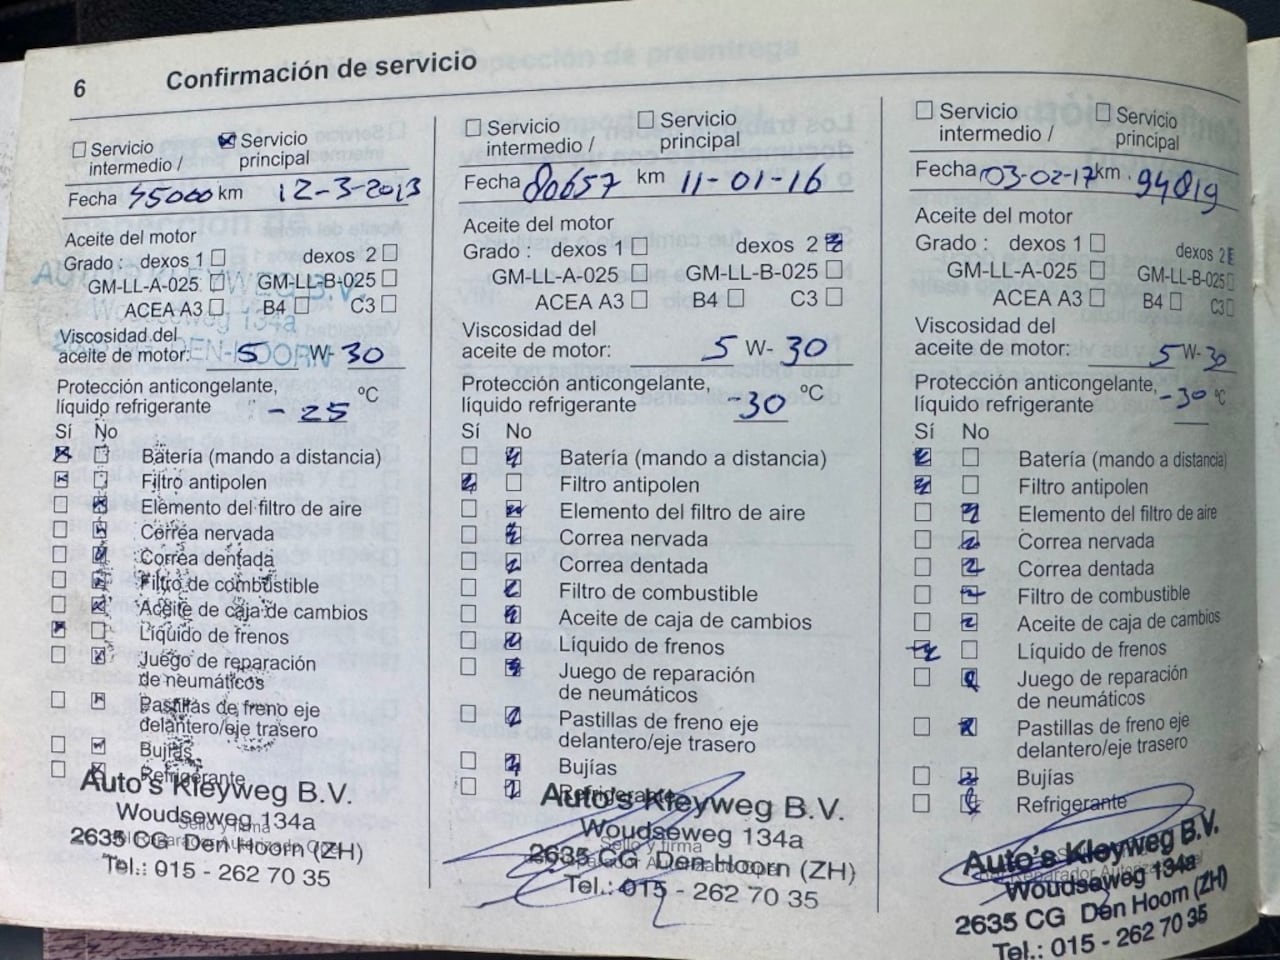 6 Confirmación de servicio
Servicio intermedio / Servicio principal
Fecha 45000 km 12-3-2013
Aceite del motor
Grado : dexos 1 dexos 2
GM-LL-A-025 GM-LL-B-025
ACEA A3 B4 C3
Viscosidad del
aceite de motor: 5 W- 30
Protección anticongelante,
líquido refrigerante -25 °C
Sí No
Batería (mando a distancia)
Filtro antipolen
Elemento del filtro de aire
Correa nervada
Correa dentada
Filtro de combustible
Aceite de caja de cambios
Líquido de frenos
Juego de reparación
de neumáticos
Pastillas de freno eje
delantero/eje trasero
Bujías
Refrigerante
Auto's Kleyweg B.V.
Woudseweg 134a
Sello y firma
2635 CG Den Hoorn (ZH)
Tel.: 015 - 262 70 35
Servicio intermedio / Servicio principal
Fecha 80657 km 11-01-16
Aceite del motor
Grado : dexos 1 dexos 2
GM-LL-A-025 GM-LL-B-025
ACEA A3 B4 C3
Viscosidad del
aceite de motor: 5 W- 30
Protección anticongelante,
líquido refrigerante -30 °C
Sí No
Batería (mando a distancia)
Filtro antipolen
Elemento del filtro de aire
Correa nervada
Correa dentada
Filtro de combustible
Aceite de caja de cambios
Líquido de frenos
Juego de reparación
de neumáticos
Pastillas de freno eje
delantero/eje trasero
Bujías
Refrigerante
Auto's Kleyweg B.V.
Woudseweg 134a
Sello y firma
2635 CG Den Hoorn (ZH)
Tel.: 015 - 262 70 35
Servicio intermedio / Servicio principal
Fecha 03-02-17 km 94819
Aceite del motor
Grado : dexos 1 dexos 2
GM-LL-A-025 GM-LL-B-025
ACEA A3 B4 C3
Viscosidad del
aceite de motor: 5 W- 30
Protección anticongelante,
líquido refrigerante -30 °C
Sí No
Batería (mando a distancia)
Filtro antipolen
Elemento del filtro de aire
Correa nervada
Correa dentada
Filtro de combustible
Aceite de caja de cambios
Líquido de frenos
Juego de reparación
de neumáticos
Pastillas de freno eje
delantero/eje trasero
Bujías
Refrigerante
Auto's Kleyweg B.V.
Woudseweg 134a
2635 CG Den Hoorn (ZH)
Tel.: 015 - 262 70 35